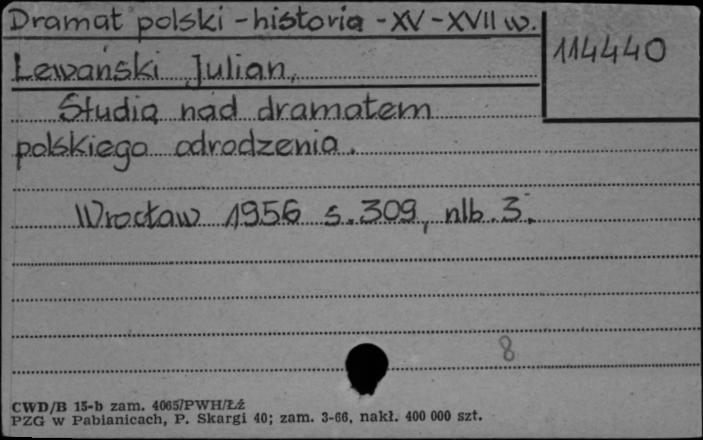 Dramat polski - historia - XV - XVII w.
114440
Lewański Julian,
Studia nad dramatem
polskiego odrodzenia.
Wrocław 1956 s. 309, nlb. 3.
8
CWD/B 15-b zam. 4065/PWH/Łź
PZG w Pabianicach, P. Skargi 40; zam. 3-66, nakł. 400 000 szt.